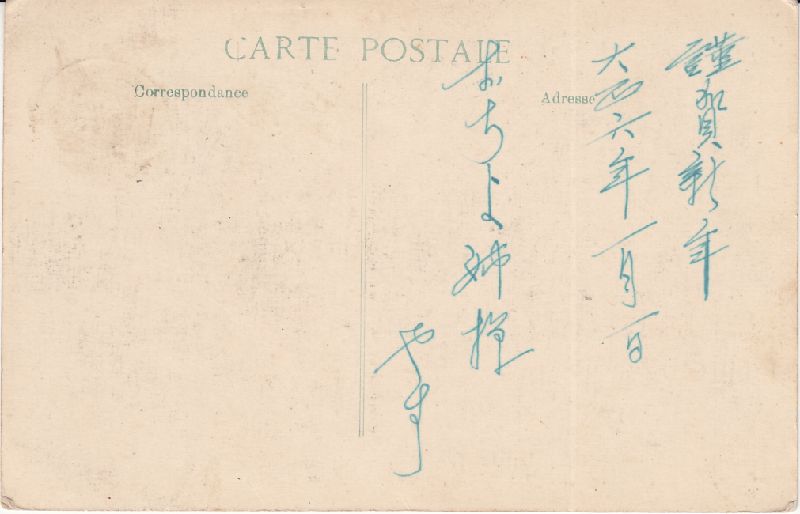 CARTE POSTALE
Correspondance
Adresse
謹賀新年
大正六年一月一日
おちよ姉様
やす